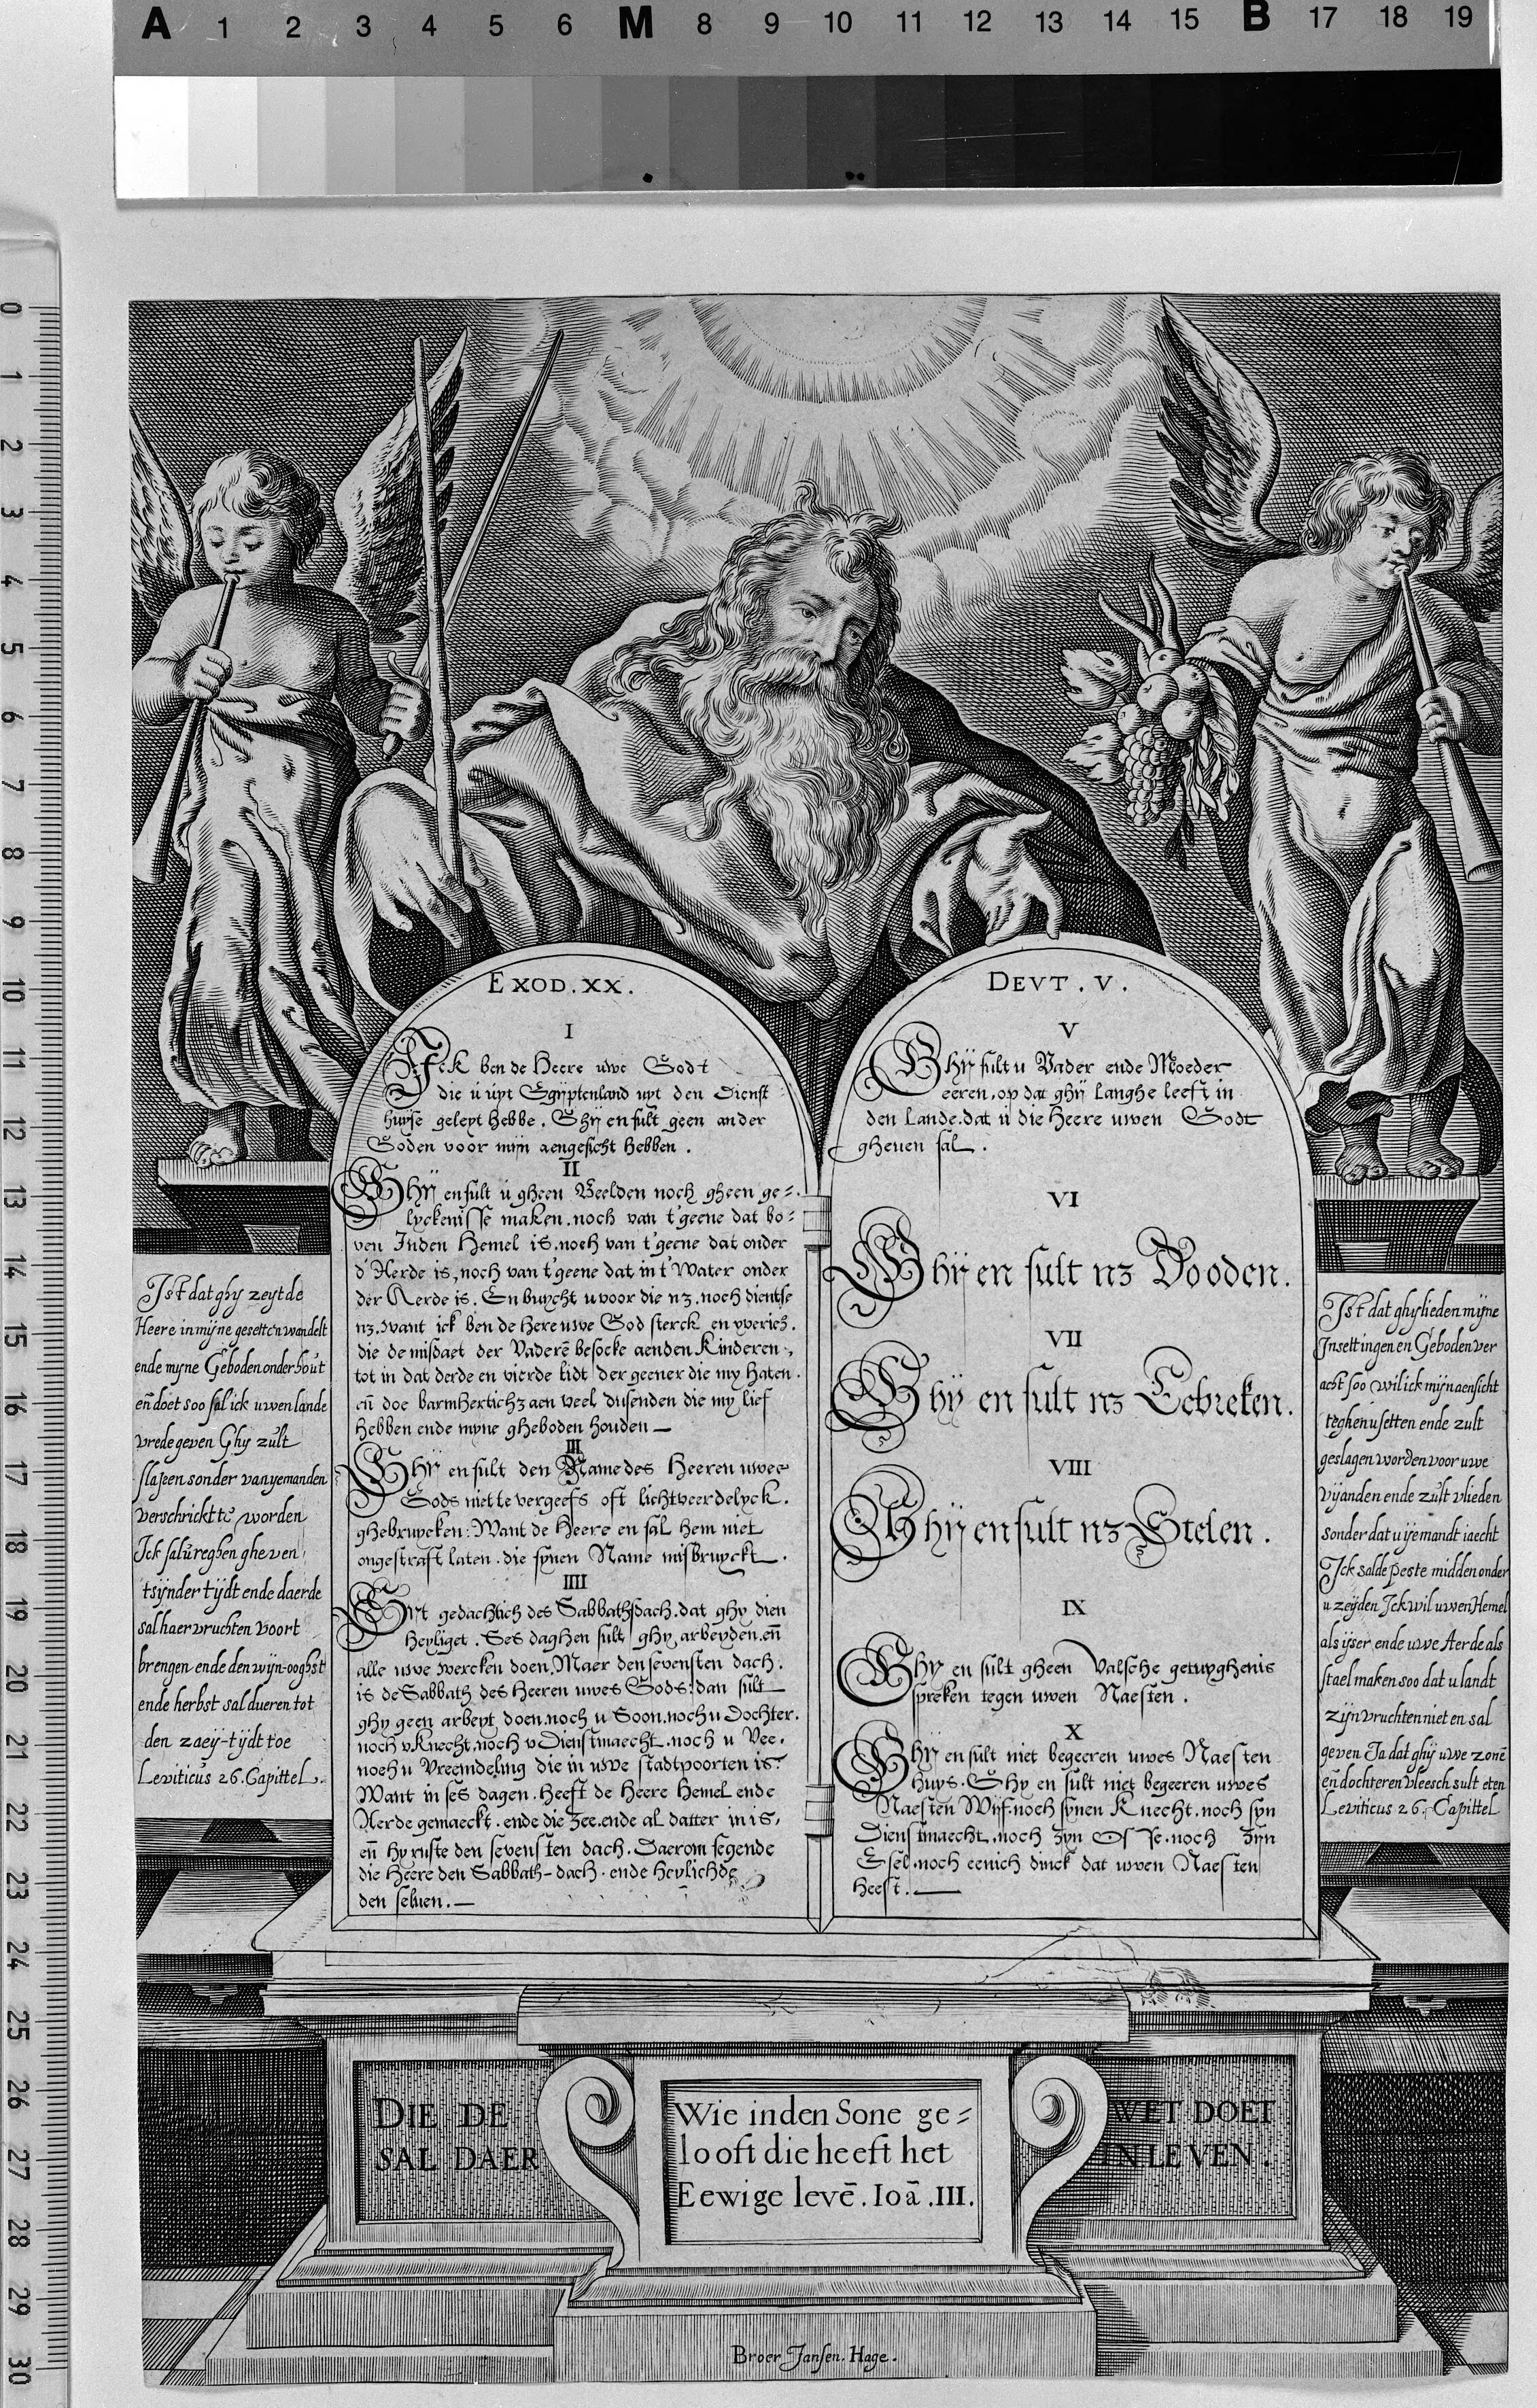 A 1 2 3 4 5 6 M 8 9 10 11 12 13 14 15 B 17 18 19
0 1 2 3 4 5 6 7 8 9 10 11 12 13 14 15 16 17 18 19 20 21 22 23 24 25 26 27 28 29 30
EXOD. XX.
I
Ick ben de Heere uwe Godt
die u uyt Egyptenland uyt den Dienst
huyse geleyt hebbe. Ghy en sult geen ander
Goden voor mijn aengesicht hebben.
II
Ghij en sult u gheen Beelden noch gheen ge=
lyckenisse maken. noch van t'geene dat bo=
ven Inden Hemel is. noch van t'geene dat onder
d'Aerde is, noch van t'geene dat in t'Water onder
der Aerde is. En buycht u voor die nz. noch dientse
nz. want ick ben de Here uwe God sterck en yverich.
die de misdaet der Vaderē besocke aenden Kinderen,
tot in dat derde en vierde lidt der geener die my Haten.
eñ doe barmhertichz aen veel dusenden die my lief
Hebben ende myne gheboden houden
III
Ghij en sult den Name des Heeren uwes
Gods niet te vergeefs oft lichtveerdelyck.
ghebruycken: Want de Heere en sal hem niet
ongestraft laten. die synen Name misbruyckt.
IIII
Syt gedachtich des Sabbathsdach. dat ghy dien
heyliget. Ses daghen sult ghy arbeyden. eñ
alle uwe wercken doen. Maer den sevensten dach.
is de Sabbath des Heeren uwes Gods: dan sult
ghy geen arbeyt doen. noch u Soon. noch u Dochter.
noch v Knecht. noch v Dienstmaecht. noch u Vee.
noch u Vreemdeling die in uwe stadtpoorten is.
Want in ses dagen. heeft de Heere Hemel ende
Aerde gemaeckt. ende die Zee. ende al datter in is,
eñ hy ruste den sevensten dach. Daerom segende
die Heere den Sabbath-dach. ende heylichde
den selven.
DEVT. V.
V
Ghij sult u Vader ende Moeder
eeren, op dat ghij langhe leeft in
den Lande. dat u die Heere uwen Godt
gheven sal.
VI
Ghij en sult nz Dooden.
VII
Ghij en sult nz Eebreken.
VIII
Ghij en sult nz Stelen.
IX
Ghy en sult gheen Valsche getuyghenis
spreken tegen uwen Naesten.
X
Ghij en sult niet begeeren uwes Naesten
huys. Ghy en sult niet begeeren uwes
Naesten Wijf. noch synen Knecht. noch syn
Dienstmaecht. noch zyn Osse. noch zyn
Esel. noch eenich dinck dat uwen Naesten
heeft.
Ist dat ghy zeyt de
Heere in mijne gesetten wandelt
ende myne Geboden onderhout
eñ doet soo sal ick uwen lande
vrede geven Ghy zult
slapen sonder van yemanden
verschrickt te worden
Ick sal u reghen gheven
tsijnder tijdt ende d aerde
sal haer vruchten voort
brengen ende den wijn-ooghst
ende herbst sal dueren tot
den zaey-tijdt toe
Leviticus 26. Capittel.
Ist dat ghylieden mijne
Insettingen en Geboden ver
acht soo wil ick mijn aensicht
teghen u setten ende zult
geslagen worden voor uwe
vijanden ende zult vlieden
sonder dat u ijemandt iaecht
Ick sal de peste midden onder
u zeyden Ick wil uwen Hemel
als ijser ende uwe Aerde als
stael maken soo dat u landt
zijn vruchten niet en sal
geven Ja dat ghij uwe zonē
eñ dochteren vleesch sult eten
Leviticus 26. Capittel
DIE DE WET DOET
SAL DAER IN LEVEN.
Wie inden Sone ge=
looft die heeft het
Eewige levē. Ioā. III.
Broer Jansen. Hage.